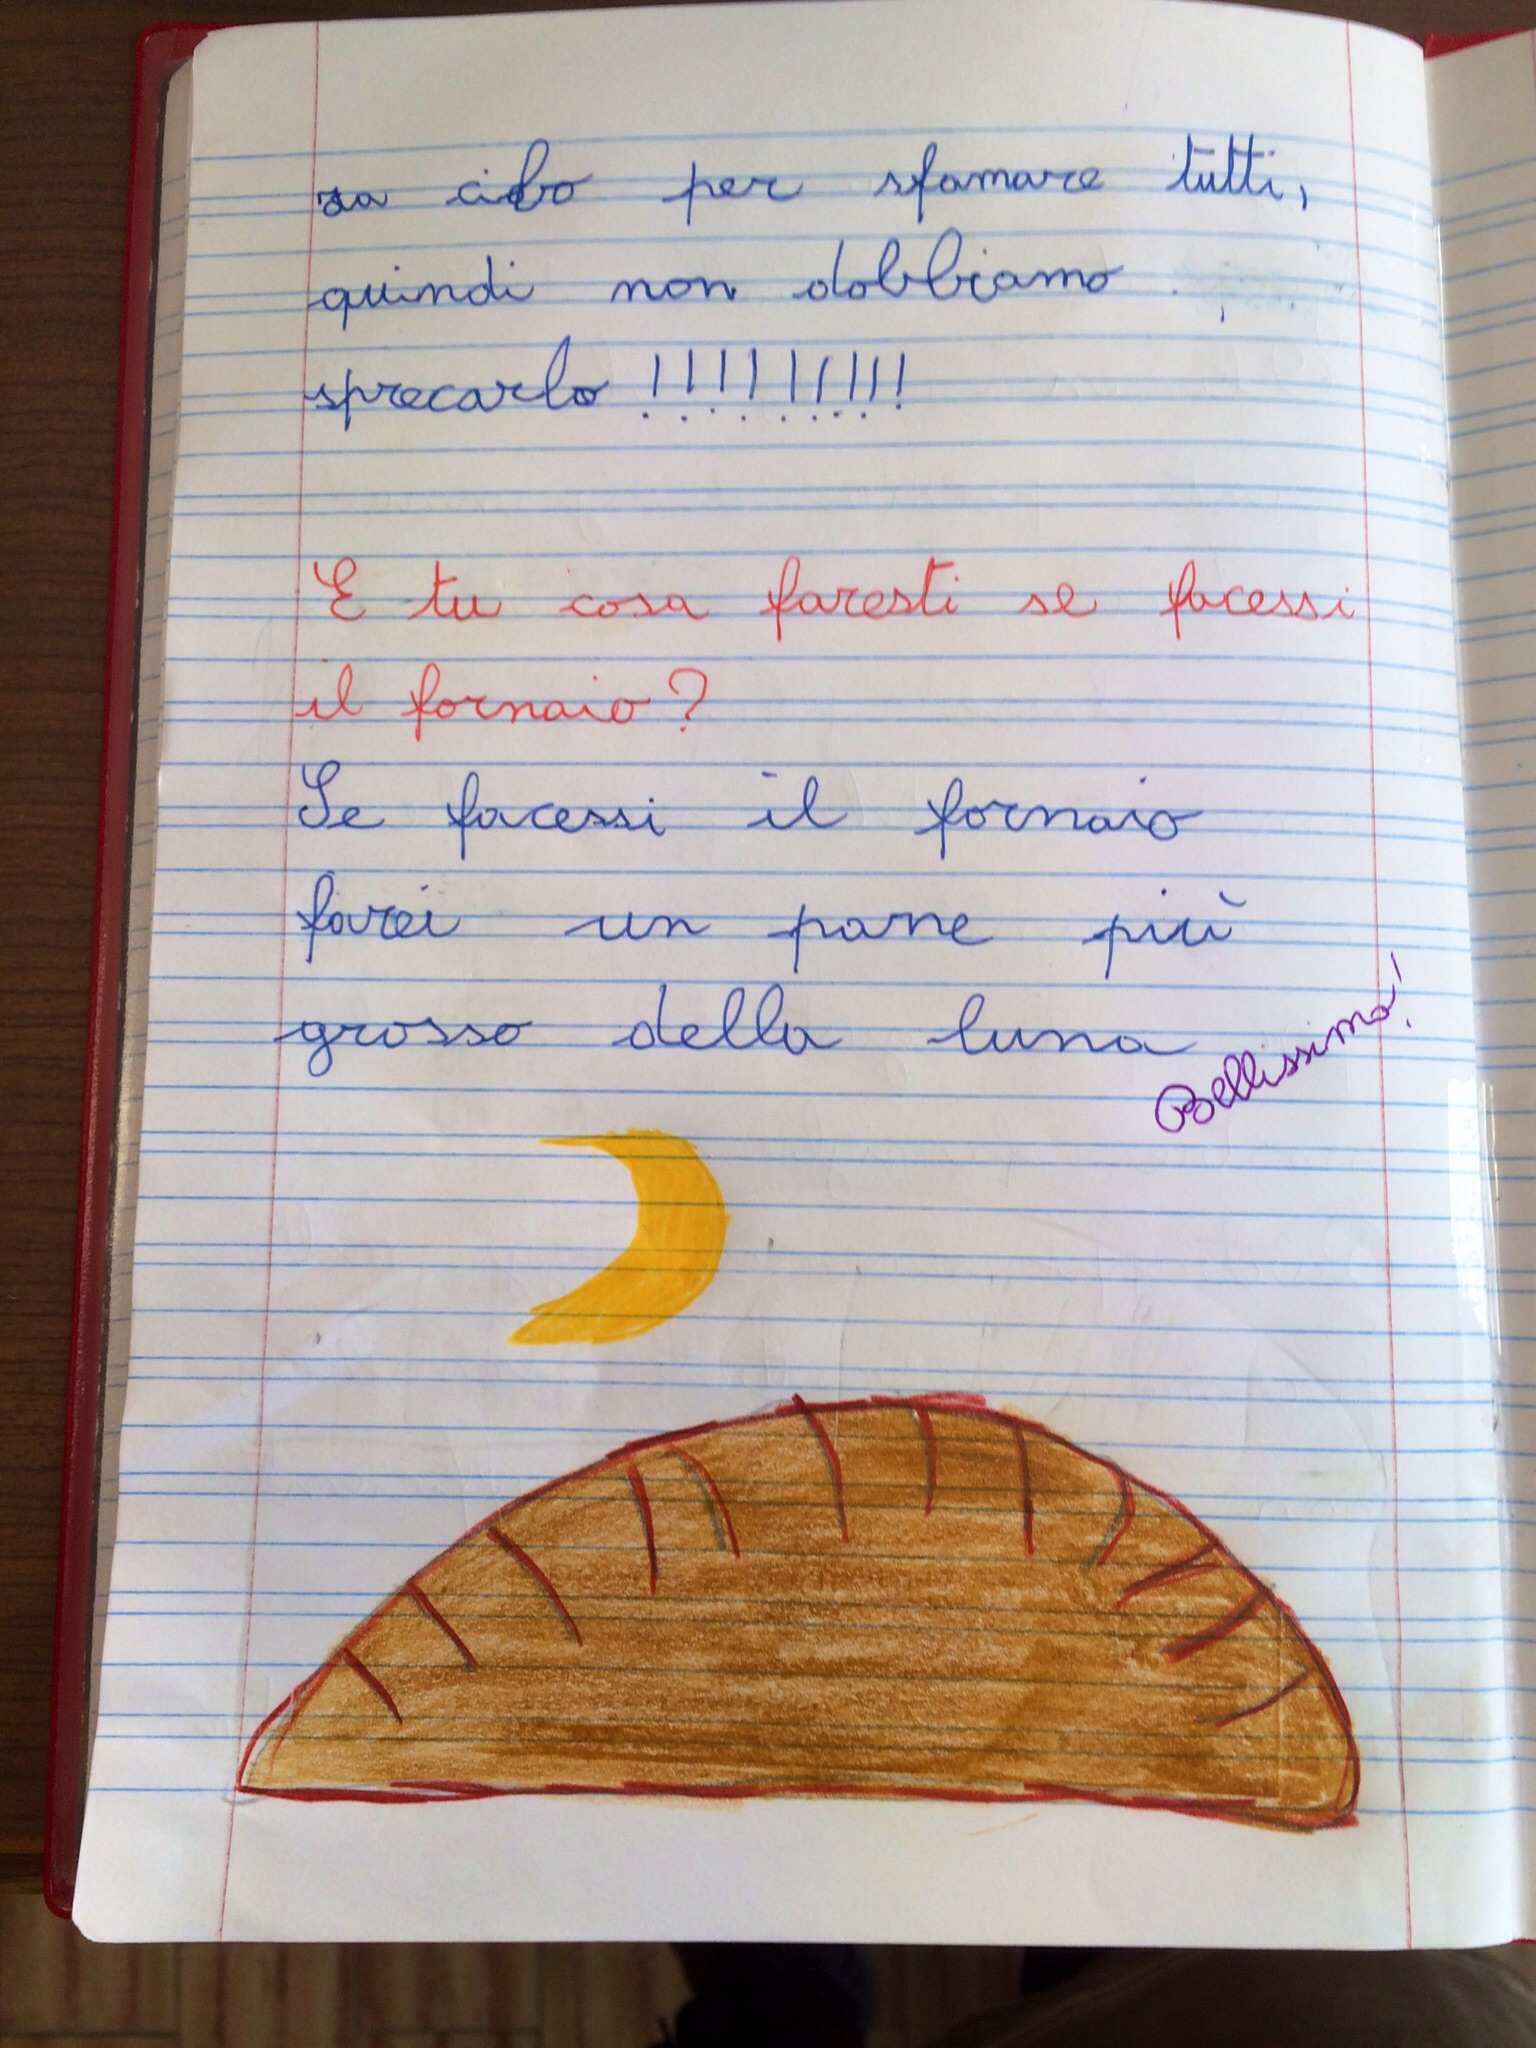 za cibo per sfamare tutti,
quindi non dobbiamo
sprecarlo !!!!!!!!!
E tu cosa faresti se facessi
il fornaio?
Se facessi il fornaio
farei un pane più
grosso della luna
Bellissimo!